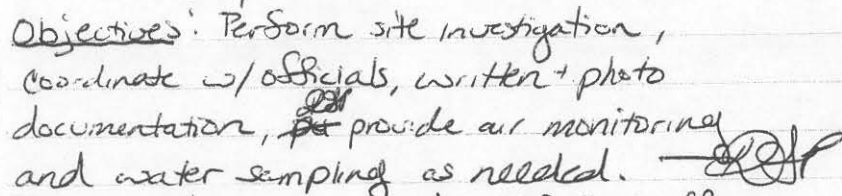 Objectives: Perform site investigation,
coordinate w/ officials, written + photo
documentation, provide air monitoring
and water sampling as needed.